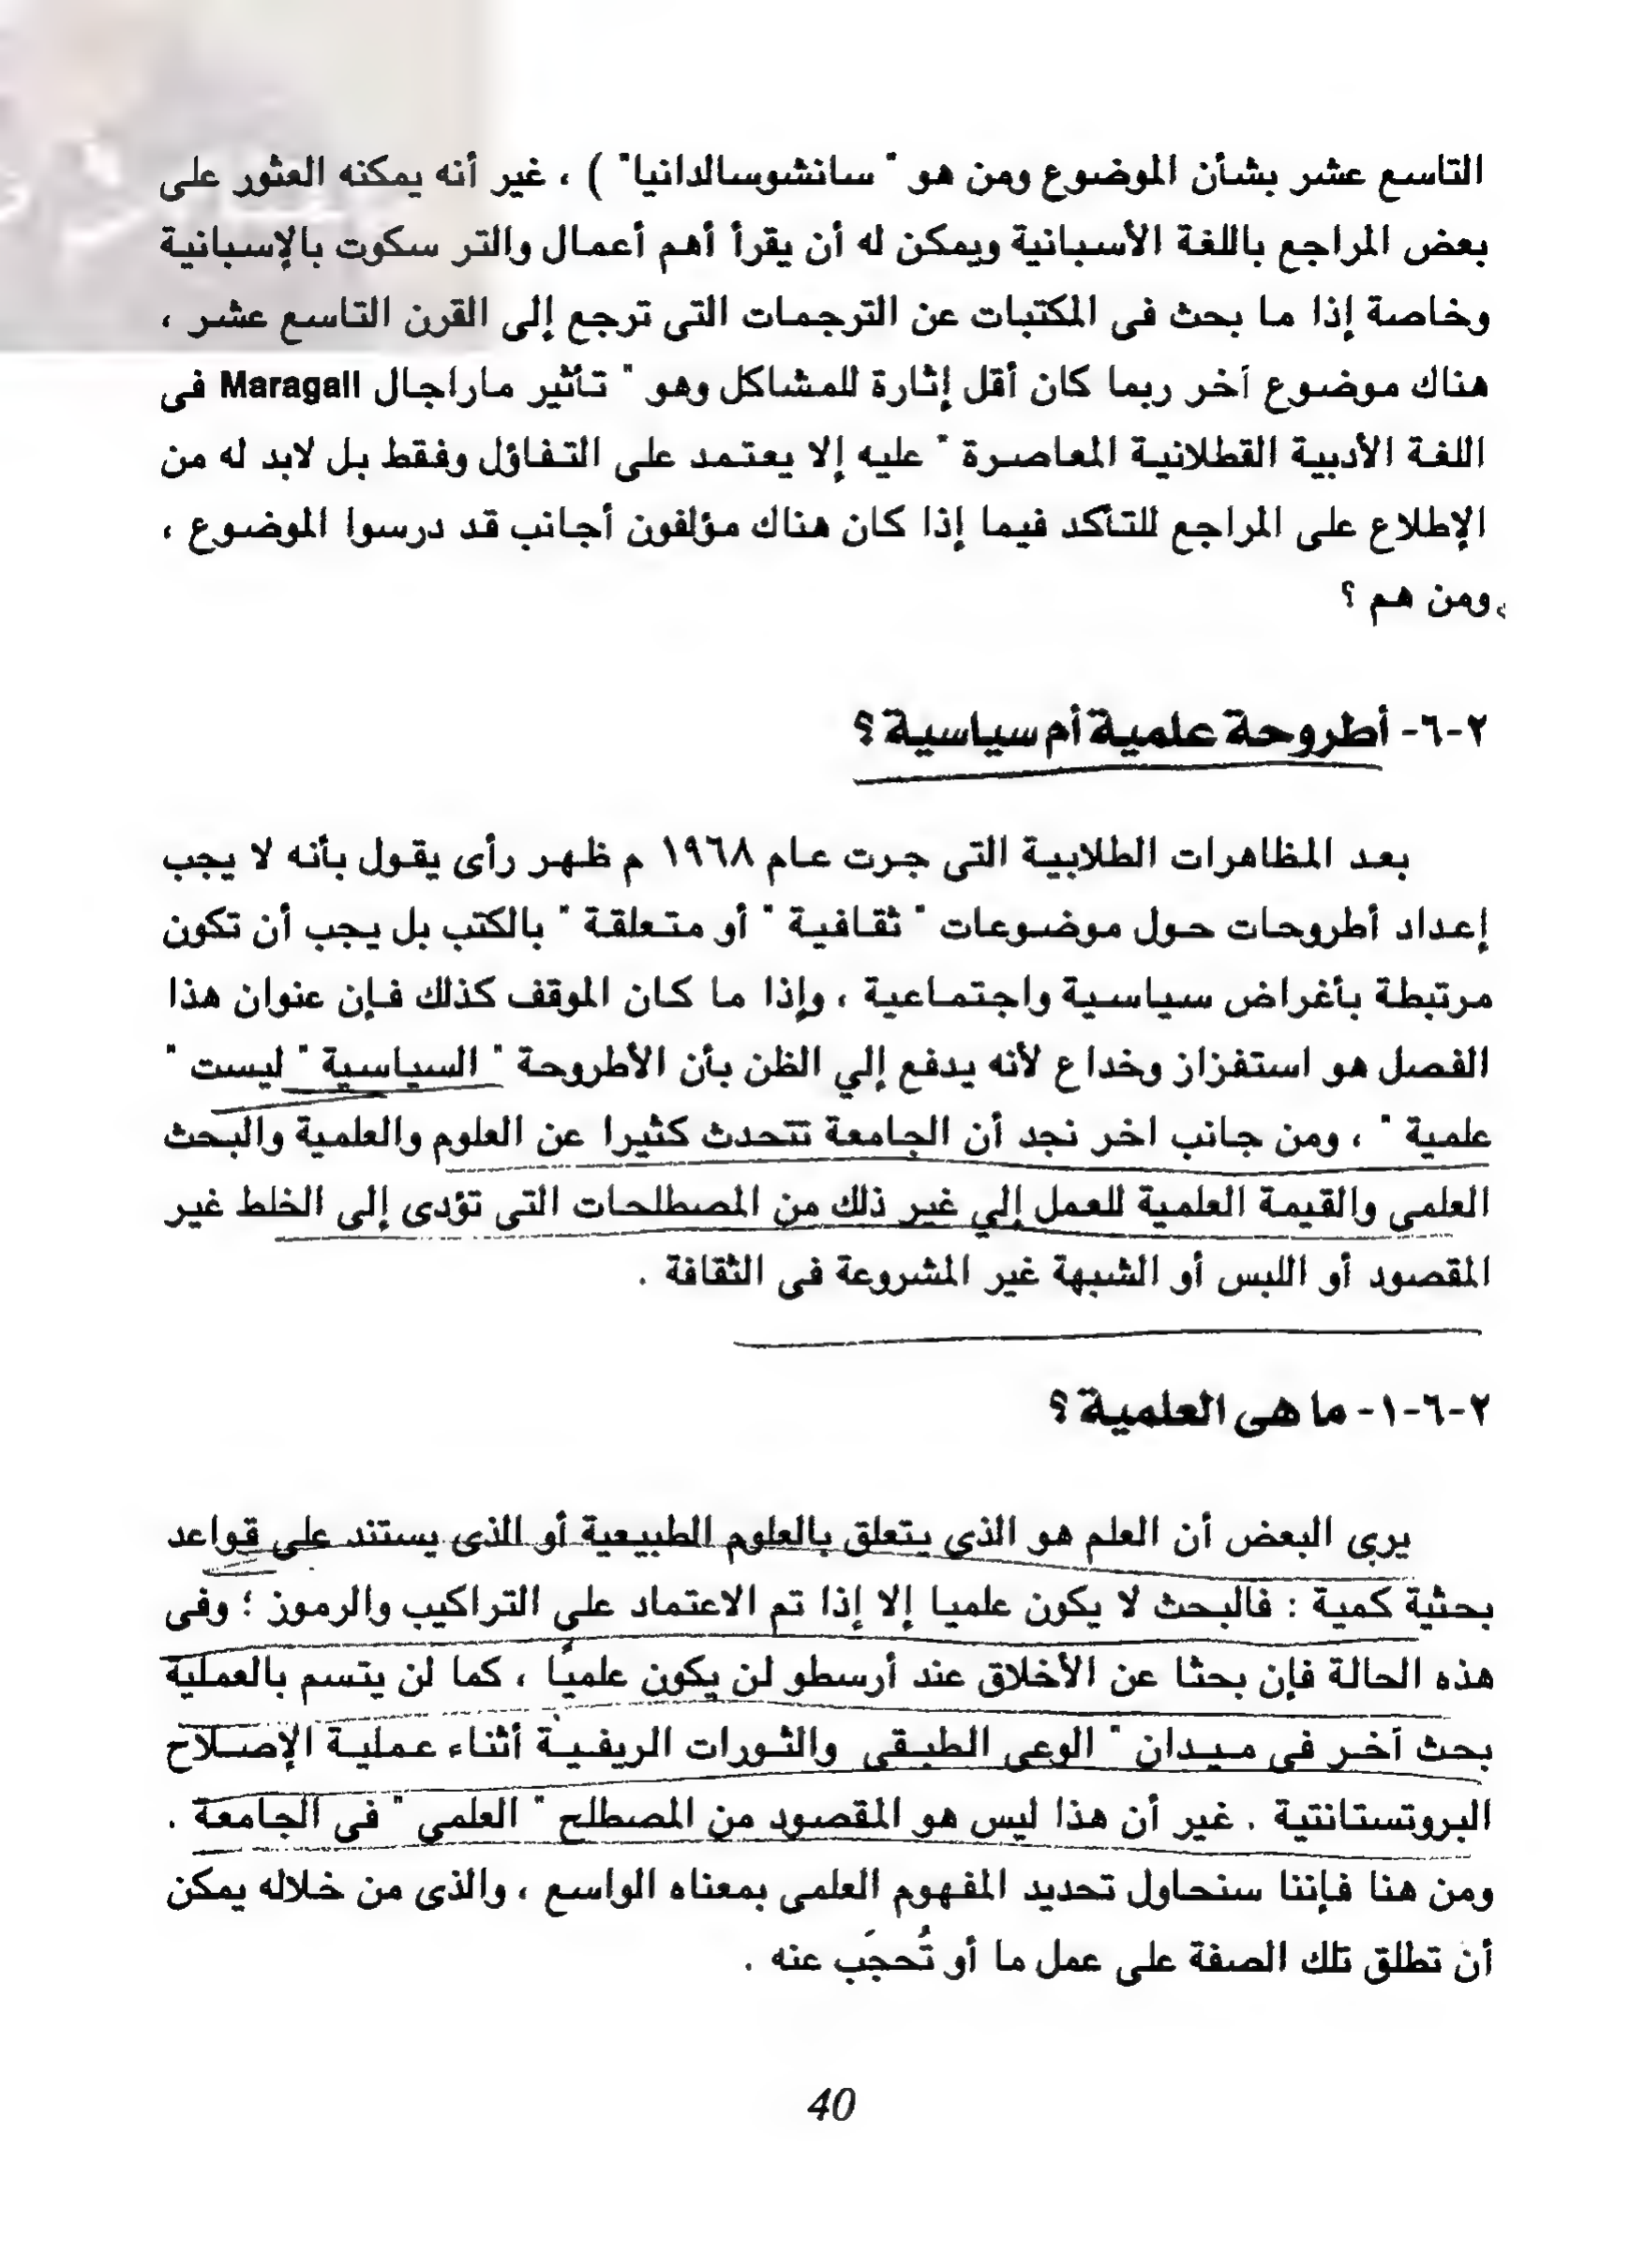 التاسع عشر بشأن الموضوع ومن هو " سانشوسالدانيا" ) ، غير أنه يمكنه العثور على
بعض المراجع باللغة الأسبانية ويمكن له أن يقرأ أهم أعمال والتر سكوت بالإسبانية
وخاصة إذا ما بحث فى المكتبات عن الترجمات التى ترجع إلى القرن التاسع عشر ،
هناك موضوع آخر ربما كان أقل إثارة للمشاكل وهو " تأثير ماراجال Maragall فى
اللغة الأدبية القطلانية المعاصرة " عليه إلا يعتمد على التفاؤل وفقط بل لابد له من
الإطلاع على المراجع للتأكد فيما إذا كان هناك مؤلفون أجانب قد درسوا الموضوع ،
ومن هم ؟
٢-٦- أطروحة علمية أم سياسية ؟
بعد المظاهرات الطلابية التى جرت عام ١٩٦٨ م ظهر رأى يقول بأنه لا يجب
إعداد أطروحات حول موضوعات " ثقافية " أو متعلقة " بالكتب بل يجب أن تكون
مرتبطة بأغراض سياسية واجتماعية ، وإذا ما كان الموقف كذلك فإن عنوان هذا
الفصل هو استفزاز وخداع لأنه يدفع إلي الظن بأن الأطروحة " السياسية " ليست "
علمية " ، ومن جانب اخر نجد أن الجامعة تتحدث كثيرا عن العلوم والعلمية والبحث
العلمى والقيمة العلمية للعمل إلي غير ذلك من المصطلحات التى تؤدى إلى الخلط غير
المقصود أو اللبس أو الشبهة غير المشروعة فى الثقافة .
٢-٦-١- ما هى العلمية ؟
يرى البعض أن العلم هو الذى يتعلق بالعلوم الطبيعية أو الذى يستند على قواعد
بحثية كمية : فالبحث لا يكون علميا إلا إذا تم الاعتماد على التراكيب والرموز ؛ وفى
هذه الحالة فإن بحثا عن الأخلاق عند أرسطو لن يكون علميًا ، كما لن يتسم بالعملية
بحث آخر فى ميدان " الوعى الطبقى والثورات الريفية أثناء عملية الإصلاح
البروتستانتية . غير أن هذا ليس هو المقصود من المصطلح " العلمى " فى الجامعة .
ومن هنا فإننا سنحاول تحديد المفهوم العلمى بمعناه الواسع ، والذى من خلاله يمكن
أن تطلق تلك الصفة على عمل ما أو تُحجَب عنه .
40